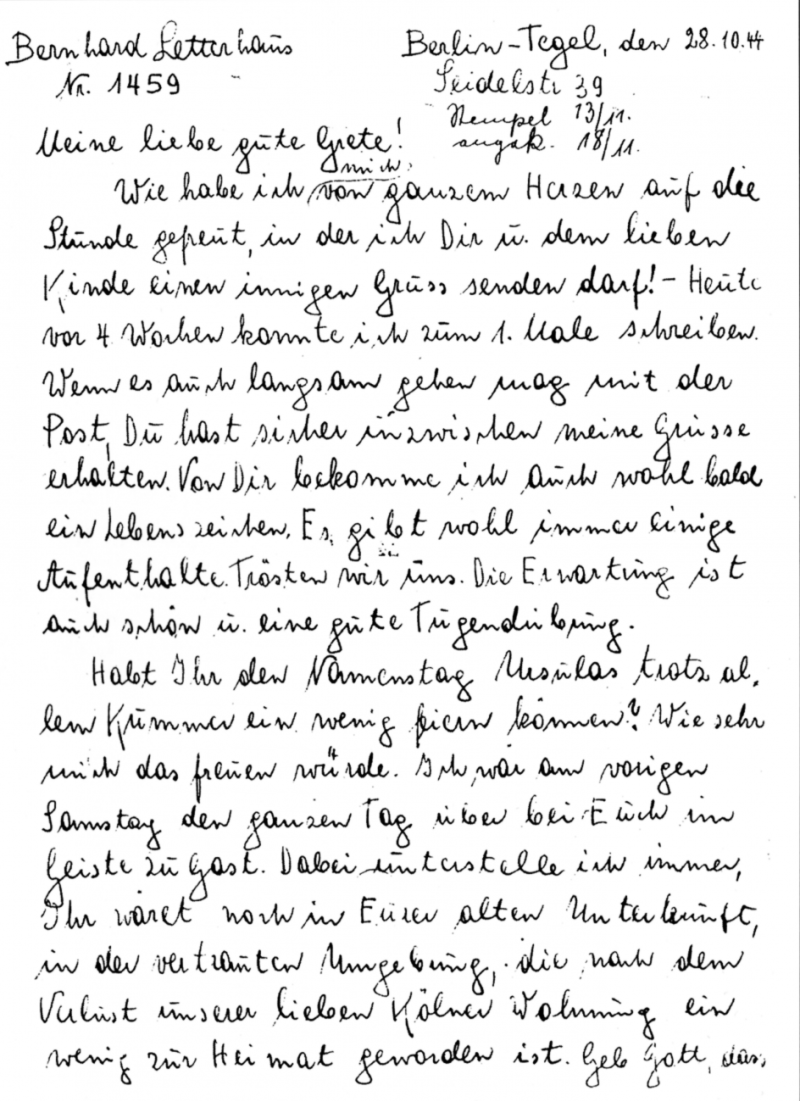 Bernhard Letterhaus
Nr. 1459
Berlin-Tegel, den 28.10.44
Seidelstr. 39
Stempel 13/11.
angek. 18/11.
Meine liebe gute Grete!
mich
Wie habe ich von ganzem Herzen auf die
Stunde gefreut, in der ich Dir u. dem lieben
Kinde einen innigen Gruss senden darf! - Heute
vor 4 Wochen konnte ich zum 1. Male schreiben.
Wenn es auch langsam gehen mag mit der
Post, Du hast sicher inzwischen meine Grüsse
erhalten. Von Dir bekomme ich auch wohl bald
ein Lebenszeichen. Es gibt wohl immer einige
Aufenthalte. Trösten wir uns. Die Erwartung ist
auch schön u. eine gute Tugendübung.
Habt Ihr den Namenstag Ursulas trotz al-
lem Kummer ein wenig feiern können? Wie sehr
mich das freuen würde. Ich war am vorigen
Samstag den ganzen Tag über bei Euch im
Geiste zu Gast. Dabei unterstelle ich immer,
Ihr wäret noch in Eurer alten Unterkunft,
in der vertrauten Umgebung, die nach dem
Verlust unserer lieben Kölner Wohnung ein
wenig zur Heimat geworden ist. Geb Gott, dass